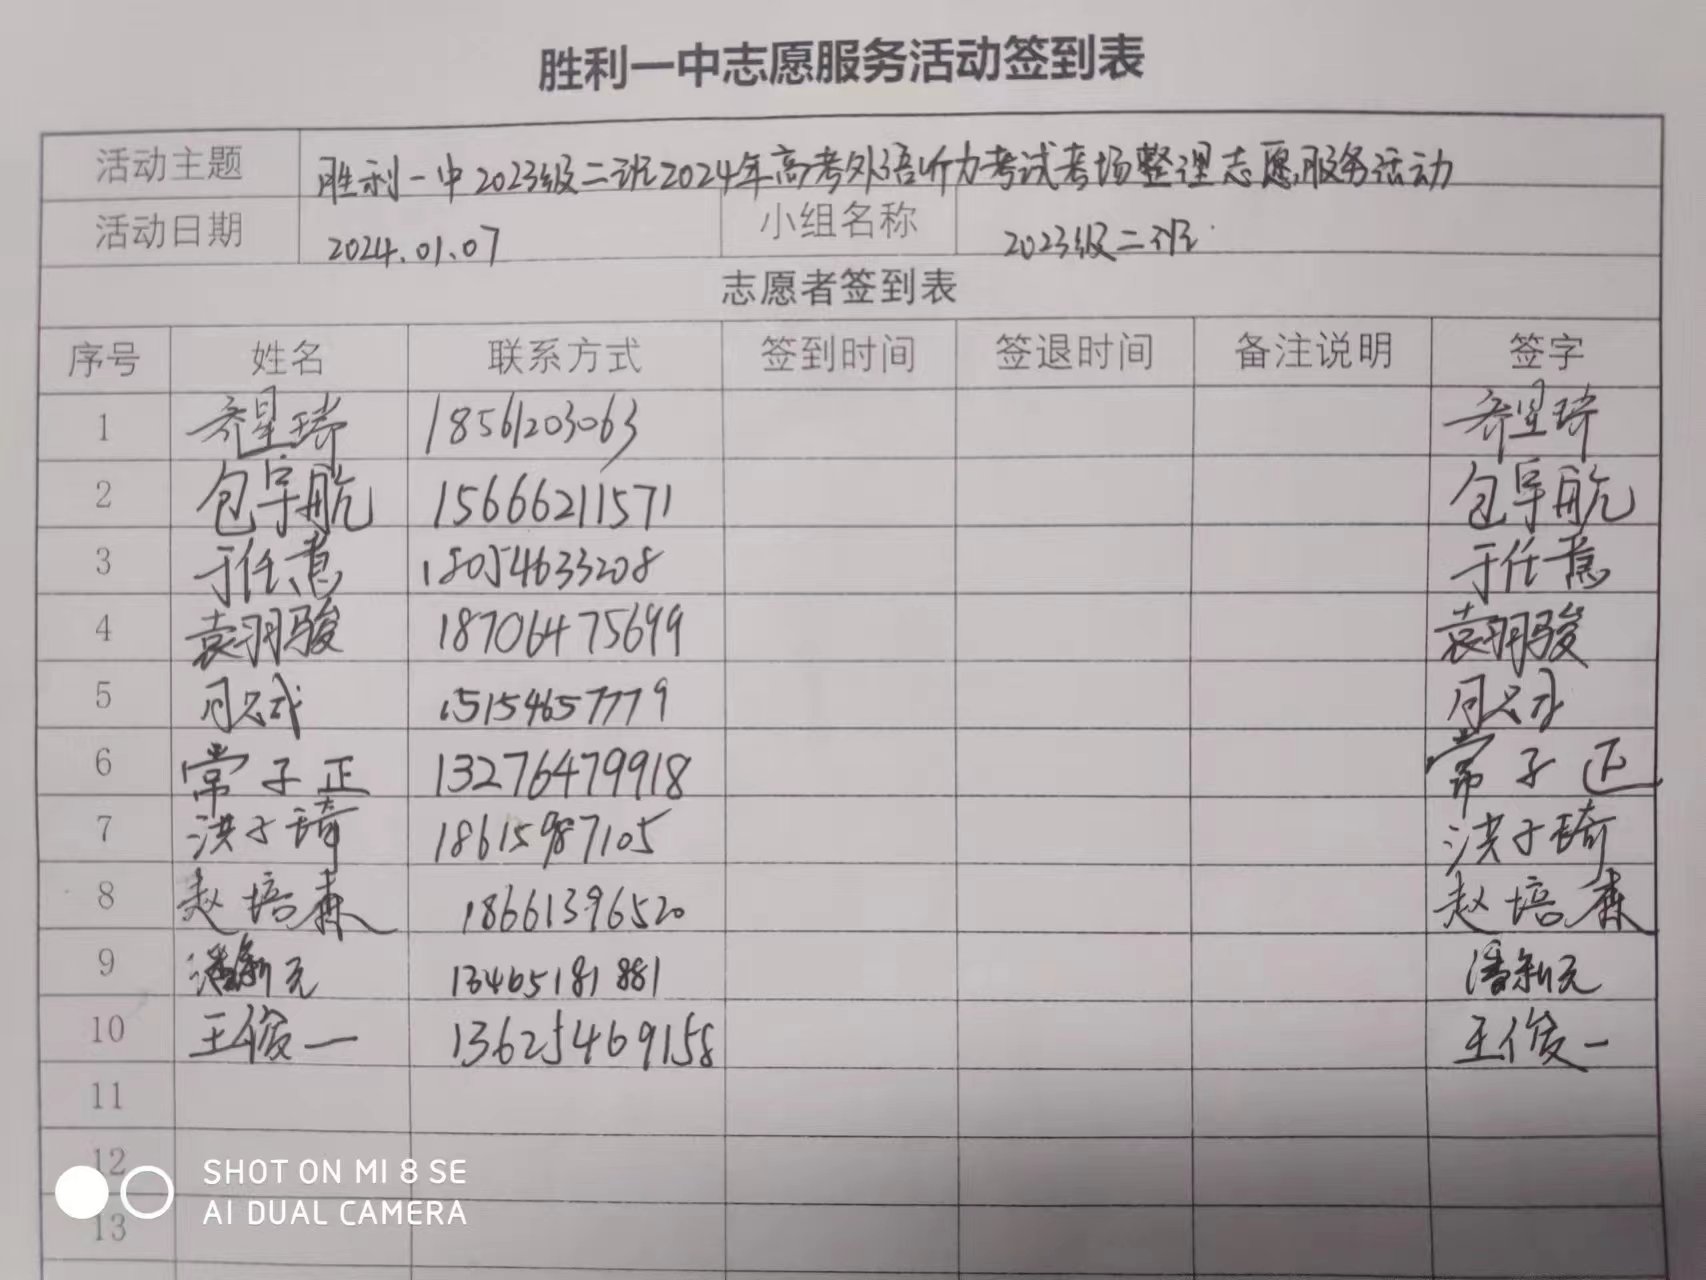 胜利一中志愿服务活动签到表
活动主题 胜利一中2023级二班2024年高考外语听力考试考场整理志愿服务活动
活动日期 2024.01.07 小组名称 2023级二班
志愿者签到表
序号 姓名 联系方式 签到时间 签退时间 备注说明 签字
1 乔星瑞 18561203063 乔星瑞
2 包宇航 15666211571 包宇航
3 于任意 18054633208 于任意
4 袁羽骏 18706475699 袁羽骏
5 15154657779
6 常子正 13276479918 常子正
7 洪子琦 18615987105 洪子琦
8 赵培森 18661396520 赵培森
9 潘新元 13465181881 潘新元
10 王俊一 13625469158 王俊一
11
12
13
SHOT ON MI 8 SE
AI DUAL CAMERA